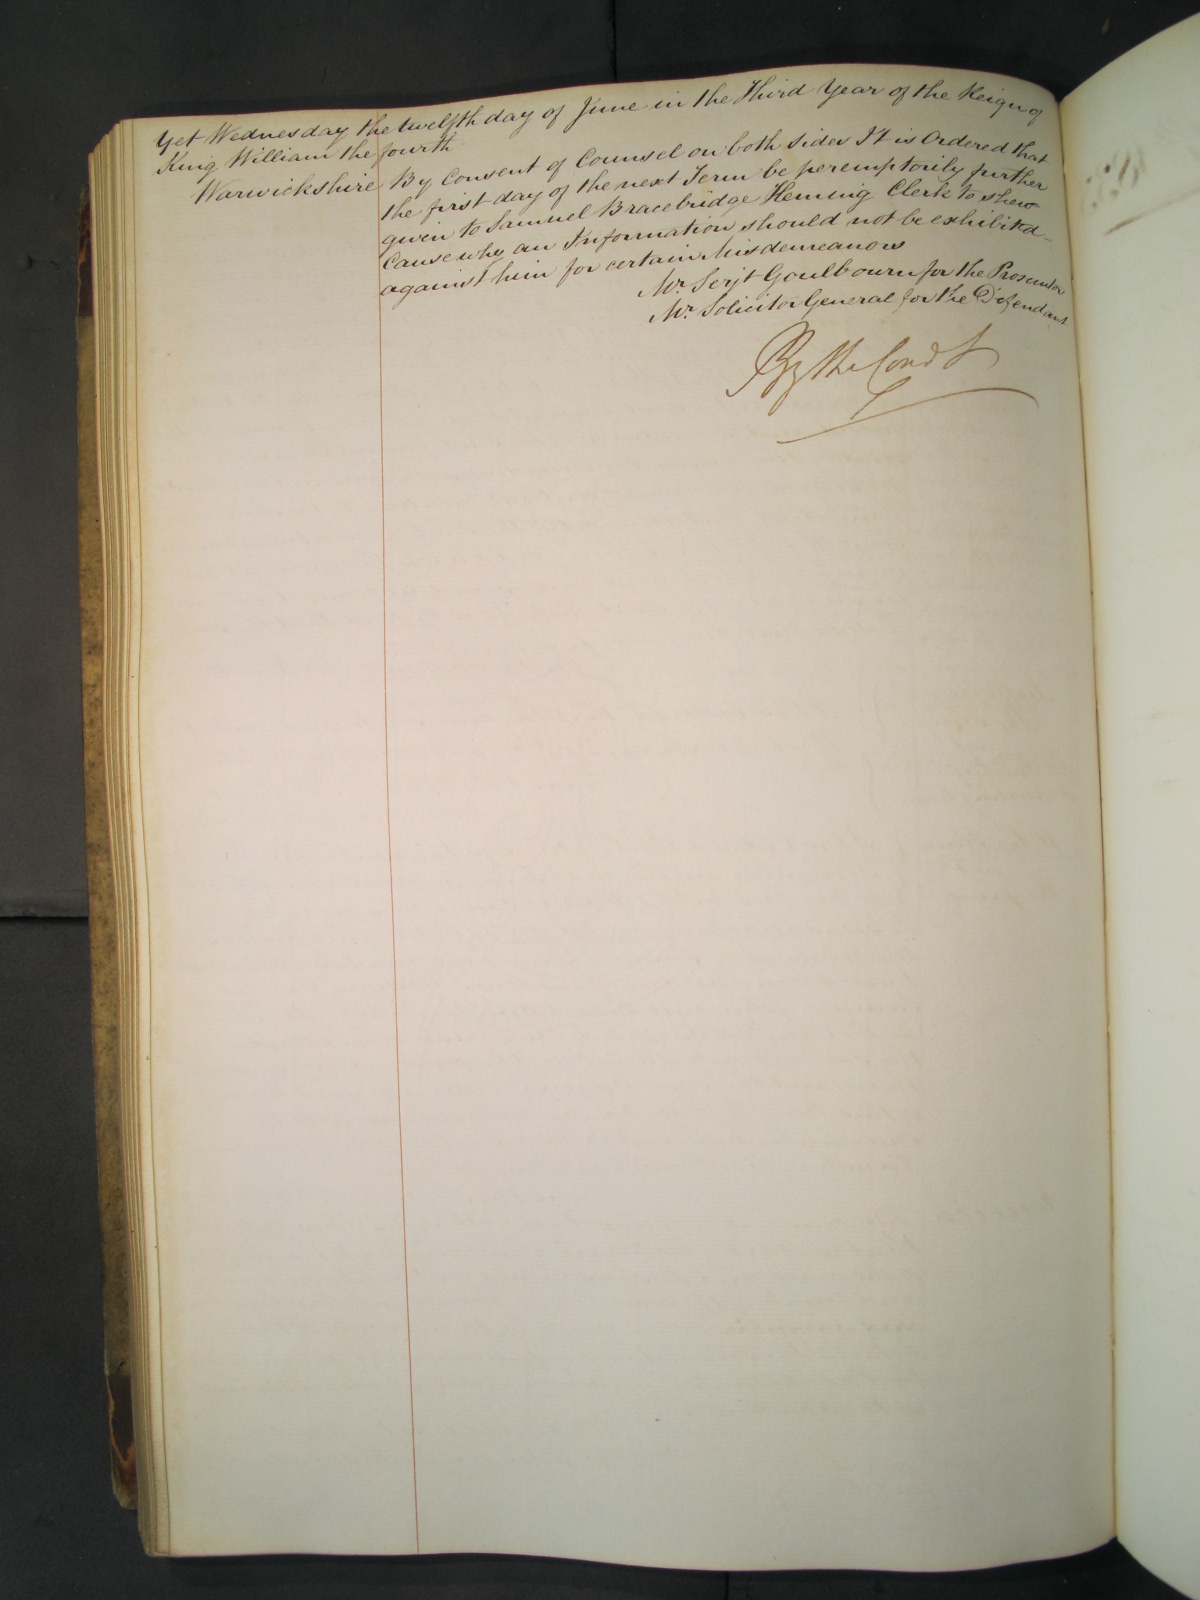 Yet Wednesday the twelfth day of June in the Third Year of the Reign of
King William the fourth
Warwickshire By Consent of Counsel on both sides It is Ordered that
the first day of the next Term be peremptorily further
given to Samuel Bracebridge Heming Clerk to shew
Cause why an Information should not be exhibited
against him for certain Misdemeanors
Mr Serjt Goulbourn for the Prosecutor
Mr Solicitor General for the Defendant
By the Court